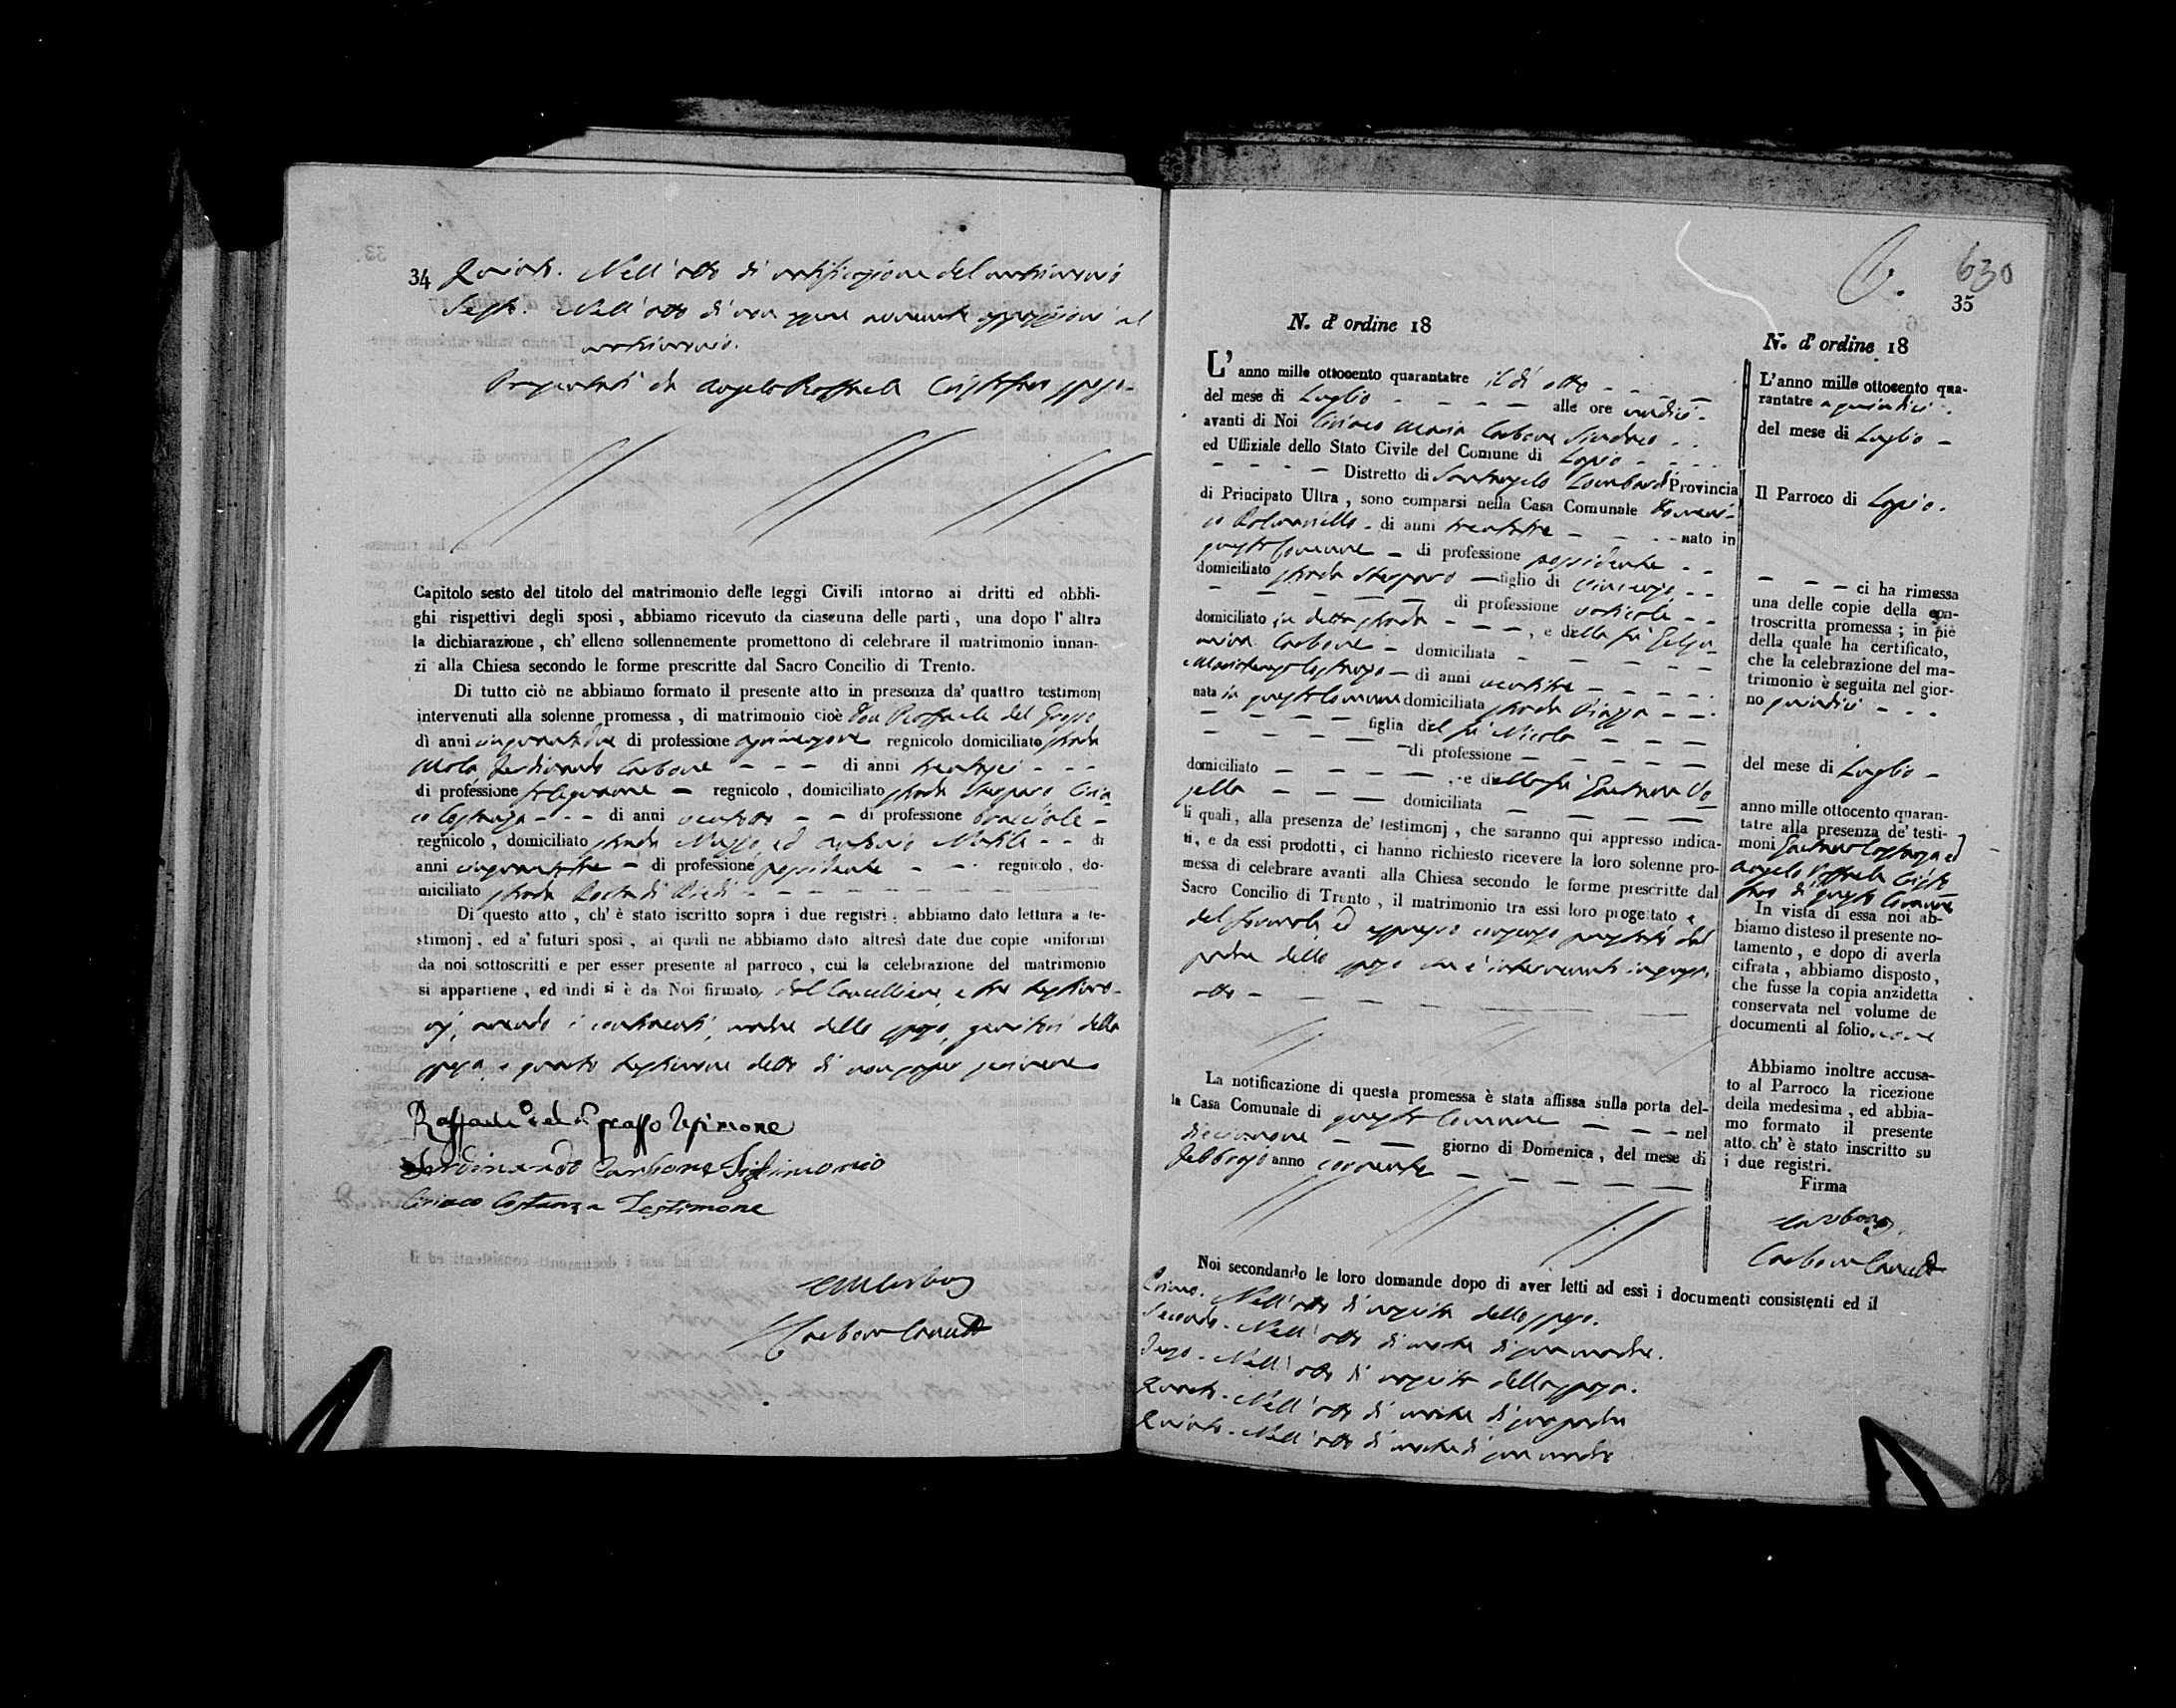 34 Quinto. Nell' atto di notificazione del matrimonio
Sesto. Nell' atto di non essere avvenuta opposizione al
matrimonio.
Presentati da Angelo Raffaele Cristofaro sposo
Capitolo sesto del titolo del matrimonio delle leggi Civili intorno ai dritti ed obbli-
ghi rispettivi degli sposi, abbiamo ricevuto da ciascuna delle parti, una dopo l' altra
la dichiarazione, ch' elleno sollennemente promettono di celebrare il matrimonio innan-
zi alla Chiesa secondo le forme prescritte dal Sacro Concilio di Trento.
Di tutto ciò ne abbiamo formato il presente atto in presenza da' quattro testimonj
intervenuti alla solenne promessa, di matrimonio cioè Don Raffaele del Grosso
di anni cinquantadue di professione regnicolo domiciliato strada
Mola, Ferdinando Carbone - - - di anni trentasei - - -
di professione falegname - regnicolo, domiciliato strada Ciria-
co Costanza - - - di anni ventotto - - di professione bracciale -
regnicolo, domiciliato strada ed Antonio - - di
anni cinquantatre - di professione possidente - - regnicolo, do-
miciliato strada
Di questo atto, ch' è stato iscritto sopra i due registri, abbiamo dato lettura a te-
stimonj, ed a' futuri sposi, ai quali ne abbiamo dato altresì date due copie uniformi
da noi sottoscritti e per esser presente al parroco, cui la celebrazione del matrimonio
si appartiene, ed indi si è da Noi firmato, dal Cancelliere, e tre testimo-
nj, avendo i contraenti, madre dello sposo, genitori della
sposa, e quarto testimone detto di non saper scrivere
Raffaele del Grosso Testimone
Ferdinando Carbone Testimonio
Ciriaco Costanza Testimone
Carbone
Carbone Cancell
630
35
N. d' ordine 18
L' anno mille ottocento quarantatre il dì otto - - -
del mese di Luglio - - - - alle ore undici -
avanti di Noi Ciriaco Maria Carbone Sindaco - -
ed Uffiziale dello Stato Civile del Comune di Lapio - - -
- - - - Distretto di Santangelo Lombardi Provincia
di Principato Ultra, sono comparsi nella Casa Comunale
di anni trentatre - - - - nato in
questo Comune - di professione possidente - -
domiciliato strada - figlio di Vincenzo - -
- - - - - di professione
domiciliato in detta strada - - -, e della fu
Carbone - domiciliata - - - - -
Costanza - di anni ventitre - - - -
nata in questo Comune domiciliata strada Piazza - -
- - - - figlia del fu Nicola - - -
- - - - - di professione - - - - -
domiciliato - - - -, e della fu Gaetana
- - - domiciliata - - - - -
li quali, alla presenza de' testimonj, che saranno qui appresso indica-
ti, e da essi prodotti, ci hanno richiesto ricevere la loro solenne pro-
messa di celebrare avanti alla Chiesa secondo le forme prescritte dal
Sacro Concilio di Trento, il matrimonio tra essi loro progettato,
del formola, ed espresso consenso prestato dal
padre dello sposo che è intervenuto in questo
atto -
La notificazione di questa promessa è stata affissa sulla porta del-
la Casa Comunale di questo Comune - - - - nel
diecinnove - - giorno di Domenica, del mese di
Febbrajo anno corrente - - - - -
Noi secondando le loro domande dopo di aver letti ad essi i documenti consistenti ed il
Primo. Nell' atto di nascita dello sposo.
Secondo. Nell' atto di morte di sua madre.
Terzo. Nell' atto di nascita della sposa.
Quarto. Nell' atto di morte di suo padre
Quinto. Nell' atto di morte di sua madre
N. d' ordine 18
L' anno mille ottocento qua-
rantatre a quindici -
del mese di Luglio -
Il Parroco di Lapio.
- - - ci ha rimessa
una delle copie della con-
troscritta promessa; in piè
della quale ha certificato,
che la celebrazione del ma-
trimonio è seguita nel gior-
no quindici - - -
del mese di Luglio -
anno mille ottocento quaran-
tatre alla presenza de' testi-
moni Gaetano Costanza ed
Angelo Raffaele Cristo
faro di questo Comune
In vista di essa noi ab-
biamo disteso il presente no-
tamento, e dopo di averla
cifrata, abbiamo disposto,
che fusse la copia anzidetta
conservata nel volume de
documenti al folio.
Abbiamo inoltre accusa-
to al Parroco la ricezione
della medesima, ed abbia-
mo formato il presente
atto, ch' è stato inscritto su
i due registri.
Firma
Carbone
Carbone Cancell